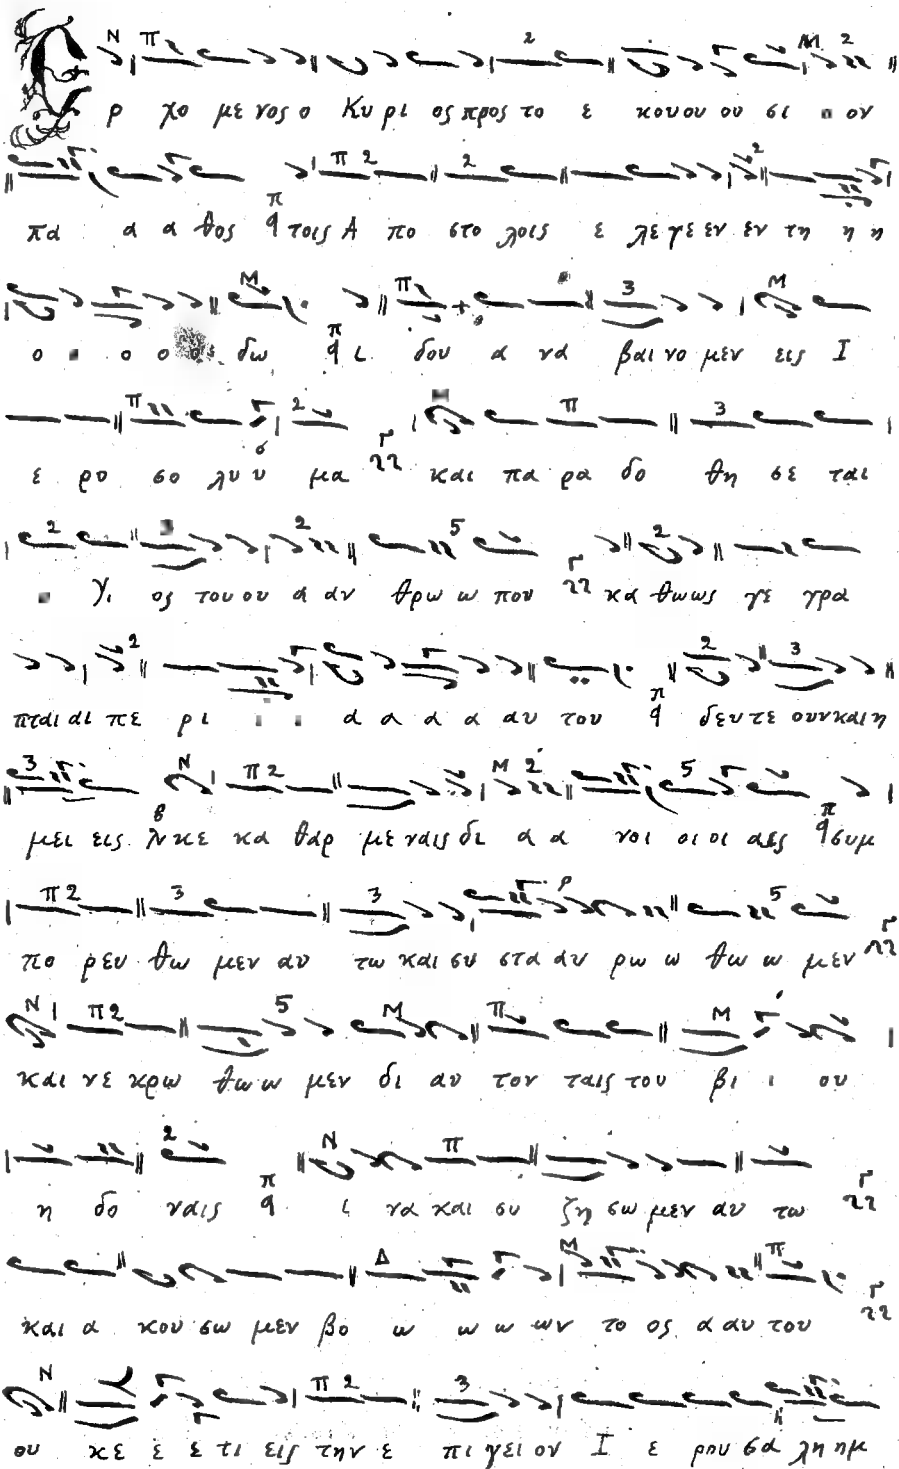 Ε ρ χο με νος ο Κυ ρι ος προς το ε κου ου ου σι ον
πα α α θος τοις Α πο στο λοις ε λε γε εν εν τη η η
ο ο ο ο δω ι δου α να βαι νο μεν εις Ι
ε ρο σο λυ υ μα και πα ρα δο θη σε ται
ο Υι ος του ου α αν θρω ω που κα θως γε γρα
πται αι πε ρι ι ι α α α α αυ του δευ τε ουν και η
μει εις κε κα θαρ με ναις δι α α νοι οι οι αις συμ
πο ρευ θω μεν αυ τω και συ στα αυ ρω ω θω ω μεν
και νε κρω θω ω μεν δι αυ τον ταις του βι ι ου
η δο ναις ι να και συ ζη σω μεν αυ τω
και α κου σω μεν βο ω ω ω ων το ος α αυ του
ου κε ε ε τι εις την ε πι γει ον Ι ε ρου σα λη ημ